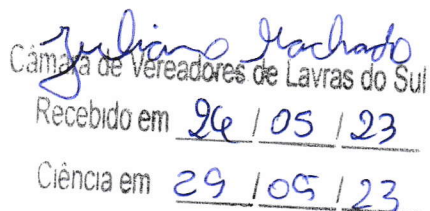 Juliano Machado
Câmara de Vereadores de Lavras do Sul
Recebido em 26 / 05 / 23
Ciência em 29 / 05 / 23